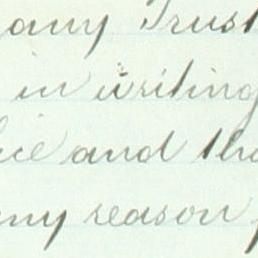 any Trust
in writing
and tha
any reason